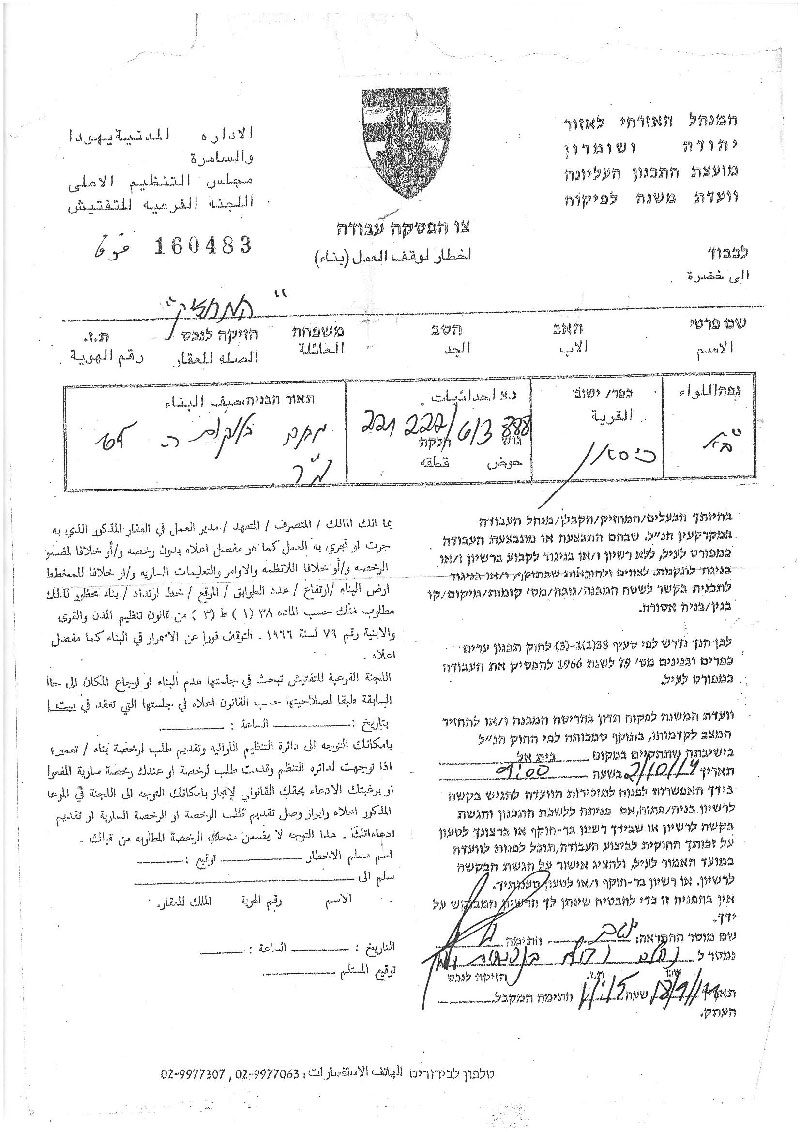 המנהל האזרחי לאזור
יהודה ושומרון
מועצת התכנון העליונה
וועדת משנה לפיקוח
الاداره المدنية يهودا
والسامرة
مجلس التنظيم الاعلى
اللجنه الفرعيه للتفتيش
160483
צו הפסקה עבודה
اخطار لوقف العمل (بناء)
לכבוד
الى حضرة
"המחזיק"
שם פרטי האב הסב משפחת הזיקה לנכס ת.ז.
الاسم الاب الجد العائلة الصله للعقار رقم الهوية
נפה/اللواء כפר/ישוב נ.צ/احداثيات תאור הבניה/صيف البناء
القرية
גוש חלקה
حوض قطعه
221 222/613
מ"ר
בהיותך הבעלים/המחזיק/הקבלן/מנהל העבודה
במקרקעין הנ"ל, שבהם התבצעה או מתבצעת העבודה
כמפורט לעיל, ללא רשיון ו/או בניגוד לקבוע ברשיון ו/או
בניגוד לתקנות, לצווים ולהוראות שבתוקף ו/או בניגוד
לתכנית בקשר לשטח המבנה/גובה/מס' קומות/מיקום/קו
בנין/בניה אסורה.
לכן הנך נדרש לפי סעיף 38(1)-(3) לחוק תכנון ערים
כפרים ובנינים מס' 79 לשנת 1966 להפסיק את העבודה
כמפורט לעיל.
וועדת המשנה לפיקוח תדון בהריסת המבנה ו/או להחזיר
המצב לקדמותו, בתוקף סמכותה לפי החוק הנ"ל
בישיבתה שתתקיים במקום בית אל
תאריך 2/10/14 בשעה 9:00
בידך האפשרות לפנות למזכירות הוועדה להגיש בקשה
לרשיון בניה/פתוח, אם פניתה ללשכת התכנון והגשת
בקשה לרשיון או שבידך רשיון בר-תוקף או ברצונך לטעון
על זכותך החוקית לביצוע העבודה, תוכל לפנות לוועדה
במועד האמור לעיל, ולהציג אישור על הגשת הבקשה
לרשיון, או רשיון בר-תוקף ו/או לטעון טענותיך.
אין בהפניה זו כדי להבטיח שינתן לך הרשיון המבוקש על
ידך.
שם מוסר ההתראה: וחתימה
נמסר ל
ת.ז. הזיקה לנכס
תאריך שעה וחתימת המקבל
העתק.
بما انك المالك / المتصرف / المتعهد / مدير العمل في العقار المذكور الذي به
جرت او تجري به العمل كما هو مفصل اعلاه بدون رخصه و/أو خلافا للقسم
الرخصه و/أو خلافا للانظمه والاوامر والتعليمات الساريه و/او خلافا للمخطط
ارض البناء / ارتفاع / عدد الطوابق / الموقع / خط ارتداد / بناء محظور لذلك
مطلوب منك حسب الماده ٣٨ (١) ط (٣) من قانون تنظيم المدن والقرى
والابنية رقم ٧٩ لسنة ١٩٦٦ . التوقف فورا عن الاستمرار في البناء كما مفصل
اعلاه .
اللجنه الفرعية للتفتيش تبحث في جلستها هدم البناء او ارجاع المكان الى حالة
السابقة طبقا لصلاحيتها حسب القانون اعلاه في جلستها التي تعقد في
بتاريخ : الساعة :
بامكانك التوجه الى دائرة التنظيم اللوائيه وتقديم طلب لرخصة بناء / تعمير،
اذا توجهت لدائره التنظيم وقدمت طلب لرخصة او عندك رخصة سارية المفعول
او برغبتك الادعاء بحقك القانوني لانجاز بامكانك التوجه الى اللجنة في الموعد
المذكور اعلاه وابراز وصل تقديم طلب الرخصة او الرخصة السارية او تقديم
ادعاءاتك . هذا التوجه لا يضمن منحك الرخصة المطلوبه من قبلك .
اسم مسلم الاخطار توقيع :
سلم الى
الاسم رقم الهوية المالك للعقار.
التاريخ : الساعة :
توقيع المستلم
טלפון לבירורים الهاتف الاستفسارات : 02-9977063 , 02-9977307